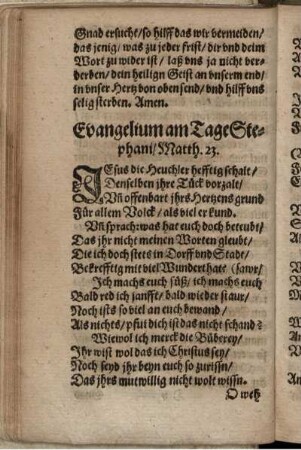 Gnad ersucht/ so hilff das wir vermeiden/
das jenig/ was zu jeder frist/ dir vnd deim
Wort zu wider ist/ laß vns ja nicht ver-
derben/ dein heilign Geist an vnserm end/
in vnser Hertz von oben send/ vnd hilff vns
selig sterben. Amen.
Evangelium am Tage Ste-
phani/ Matth. 23.
JEsus die Heuchler hefftig schalt/
Denselben jhre Tück vorzalt/
Vñ offenbart jhrs Hertzens grund
Für allem Volck/ als viel er kund.
Vñ sprach: was hat euch doch beteubt/
Das jhr nicht meinen Worten gleubt/
Die ich doch stets in Dorff vnd Stadt/
Bekrefftig mit viel Wunderthat: (sawr/
Ich machs euch süß/ ich machs euch
Bald red ich sanfft/ bald wieder staur/
Noch ists so viel an euch bewand/
Als nichts/ pfui dich ist das nicht schand?
Wiewol ich merck die Büberey/
Ihr wist wol das ich Christus sey/
Noch seyd jhr beyn euch so zurissn/
Das jhrs mutwillig nicht wolt wissn.
O weh